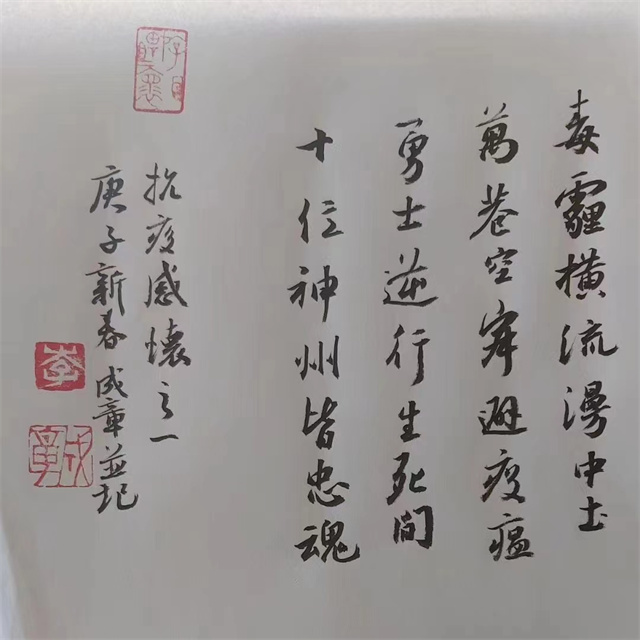 毒霾橫流漫中土
萬巷空寂避疫瘟
勇士逆行生死間
十位神州皆忠魂
抗疫感懷之一
庚子新春成章並記
李
成章